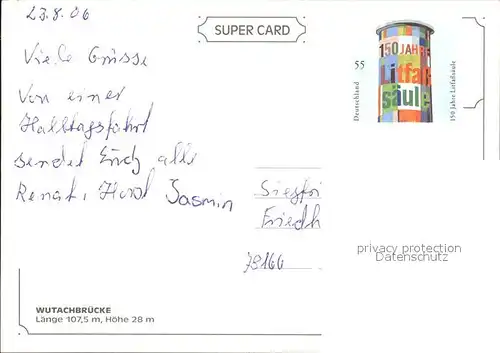 23.8.06
SUPER CARD
Viele Grüsse
Von einer
Halbtagsfahrt
sendet Euch alle
Renate, Horst Jasmin
55
Deutschland
150 JAHRE
Litfaß
säule
150 Jahre Litfaßsäule
Siegfri
Friedh
78166
privacy protection
Datenschutz
WUTACHBRÜCKE
Länge 107,5 m, Höhe 28 m